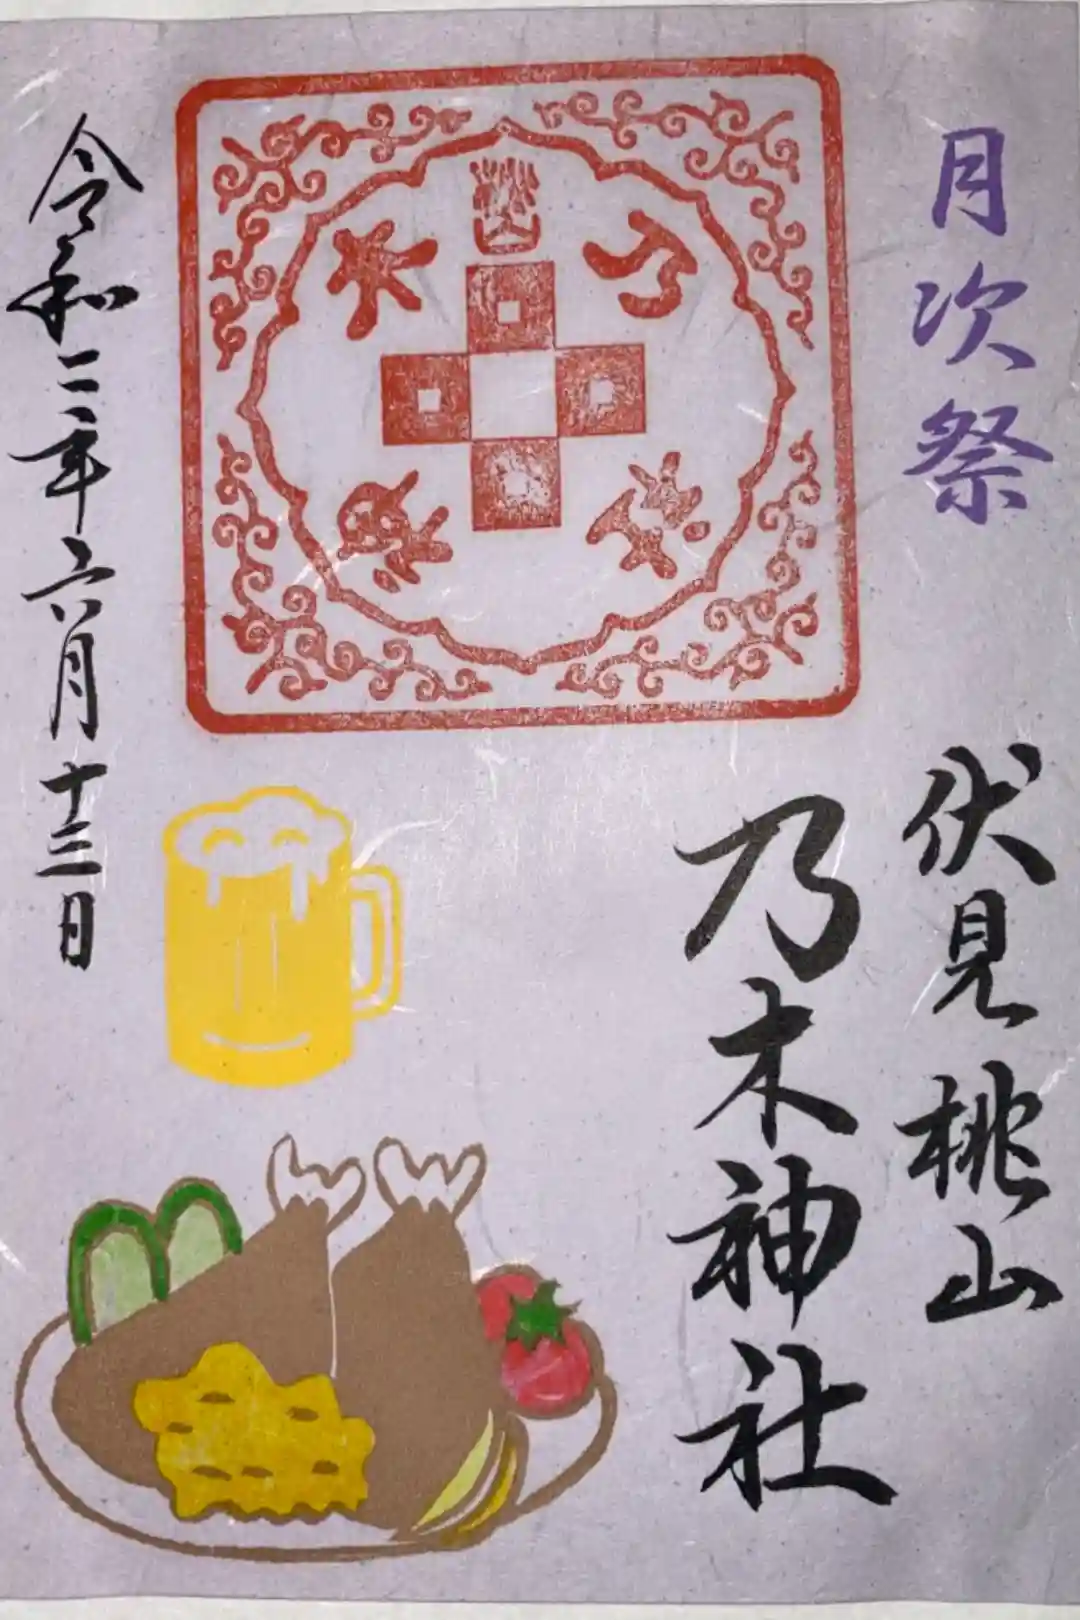 月次祭
伏見桃山
乃木神社
乃木
令和二年六月十三日